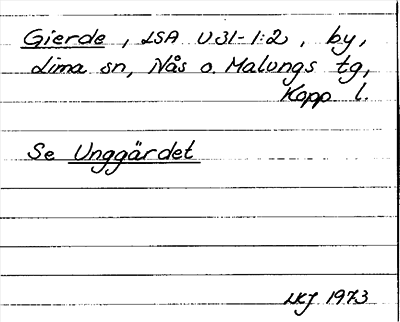 Gierde, LSA U31-1:2, by,
Lima sn, Nås o. Malungs tg,
Kopp l.
Se Unggärdet
LKJ 1973